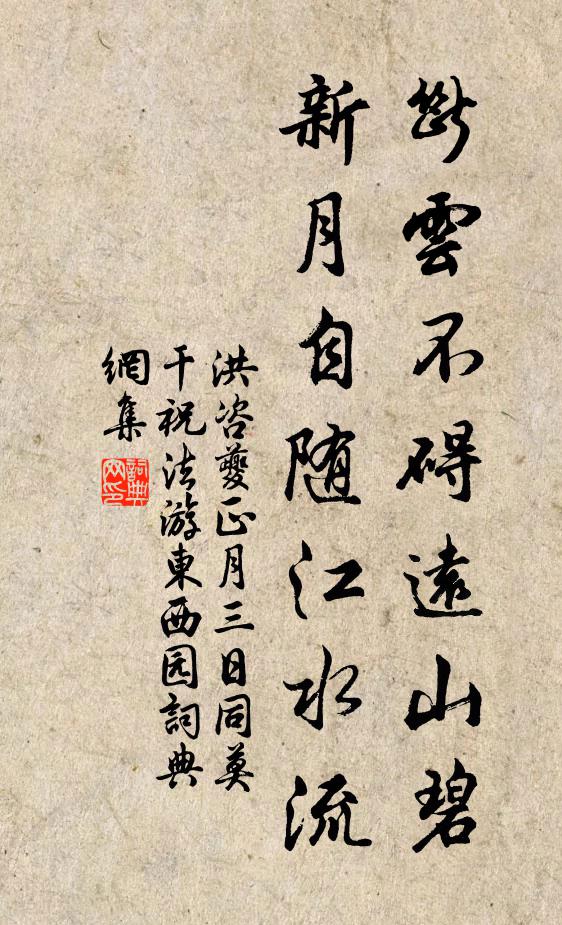 斷雲不碍遠山碧
新月自随江水流
洪咨夔正月三日同莫
干祝法游東西园詞典
網集
詞典網印